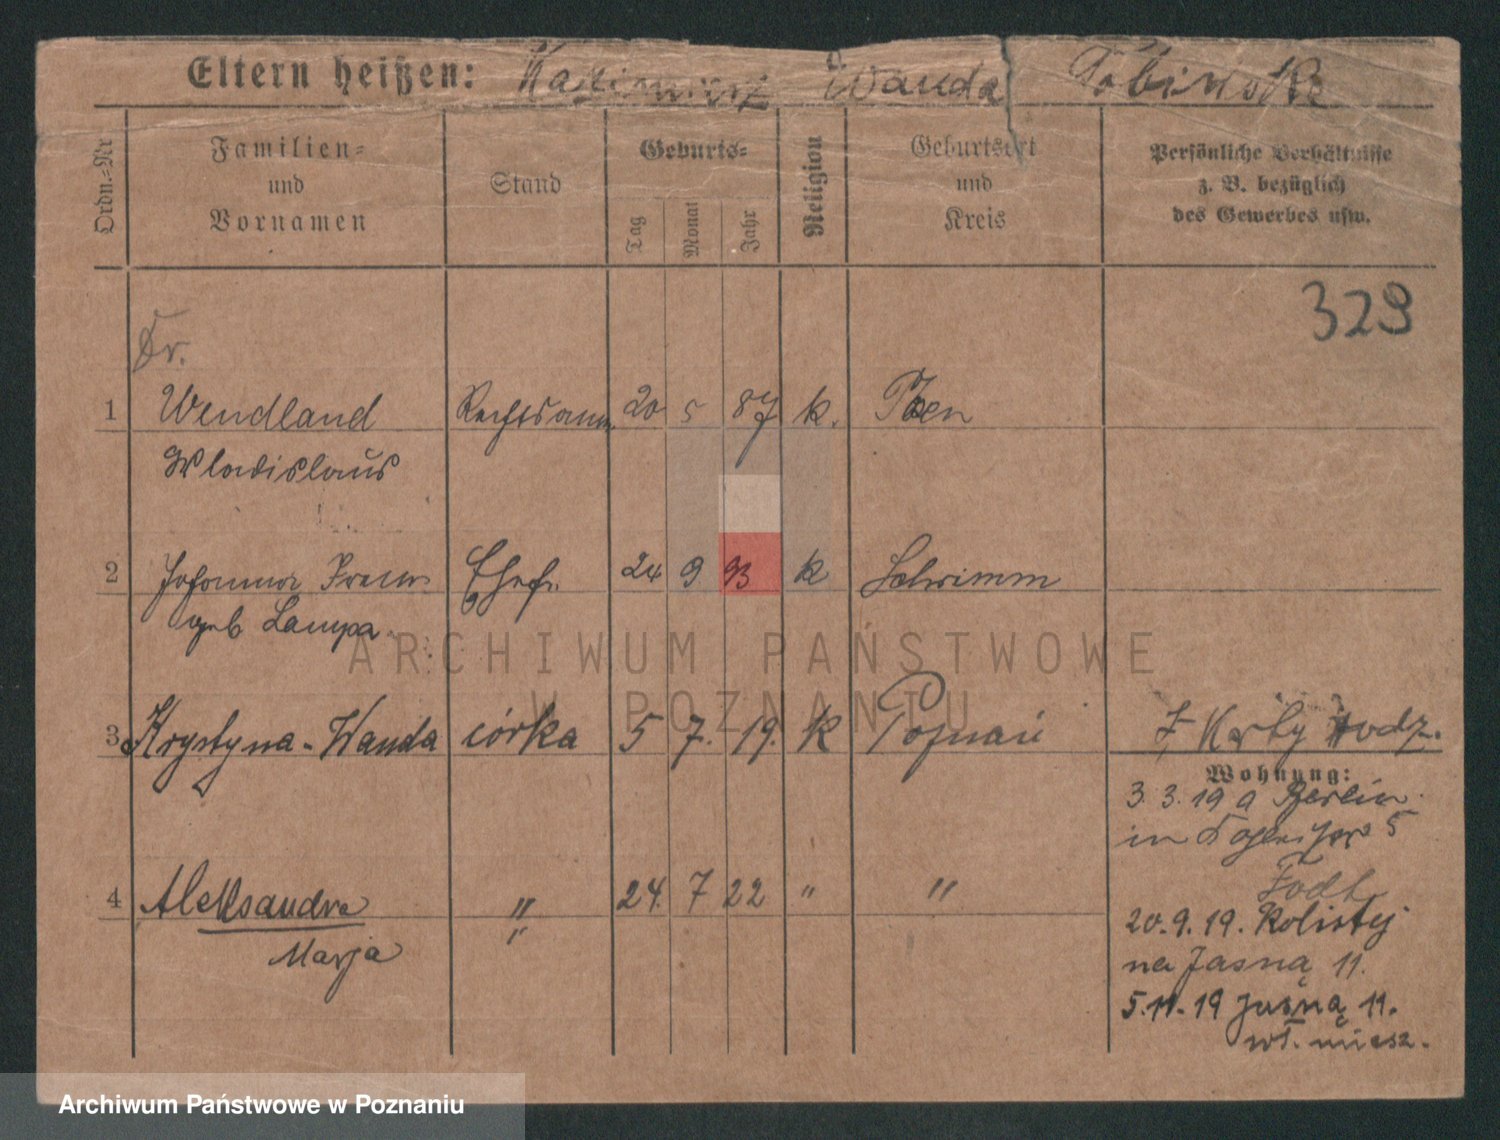 Eltern heißen: Kazimierz u. Wanda Tobinska
Ordn.-Nr
Familien-
und
Vornamen
Stand
Geburts-
Tag
Monat
Jahr
Religion
Geburtsort
und
Kreis
Persönliche Verhältnisse
z. B. bezüglich
des Gewerbes usw.
329
Dr.
1 Wendland Rechtsanw. 20 5 87 k. Posen
Wladislaus
2 Johanna Ehefr. 24 9 93 k Schrimm
geb Lampa
3 Krystyna-Wanda córka 5 7. 19. k Poznań Z Karty rodz.
Wohnung:
3.3.19 a Berlin
in 5
4 Aleksandra " 24. 7 22 " "
Marja "
20.9.19. Kolistej
na Jasną 11.
5.11.19 Jasną 11.
wł. miesz.
ARCHIWUM PAŃSTWOWE
W POZNANIU
Archiwum Państwowe w Poznaniu